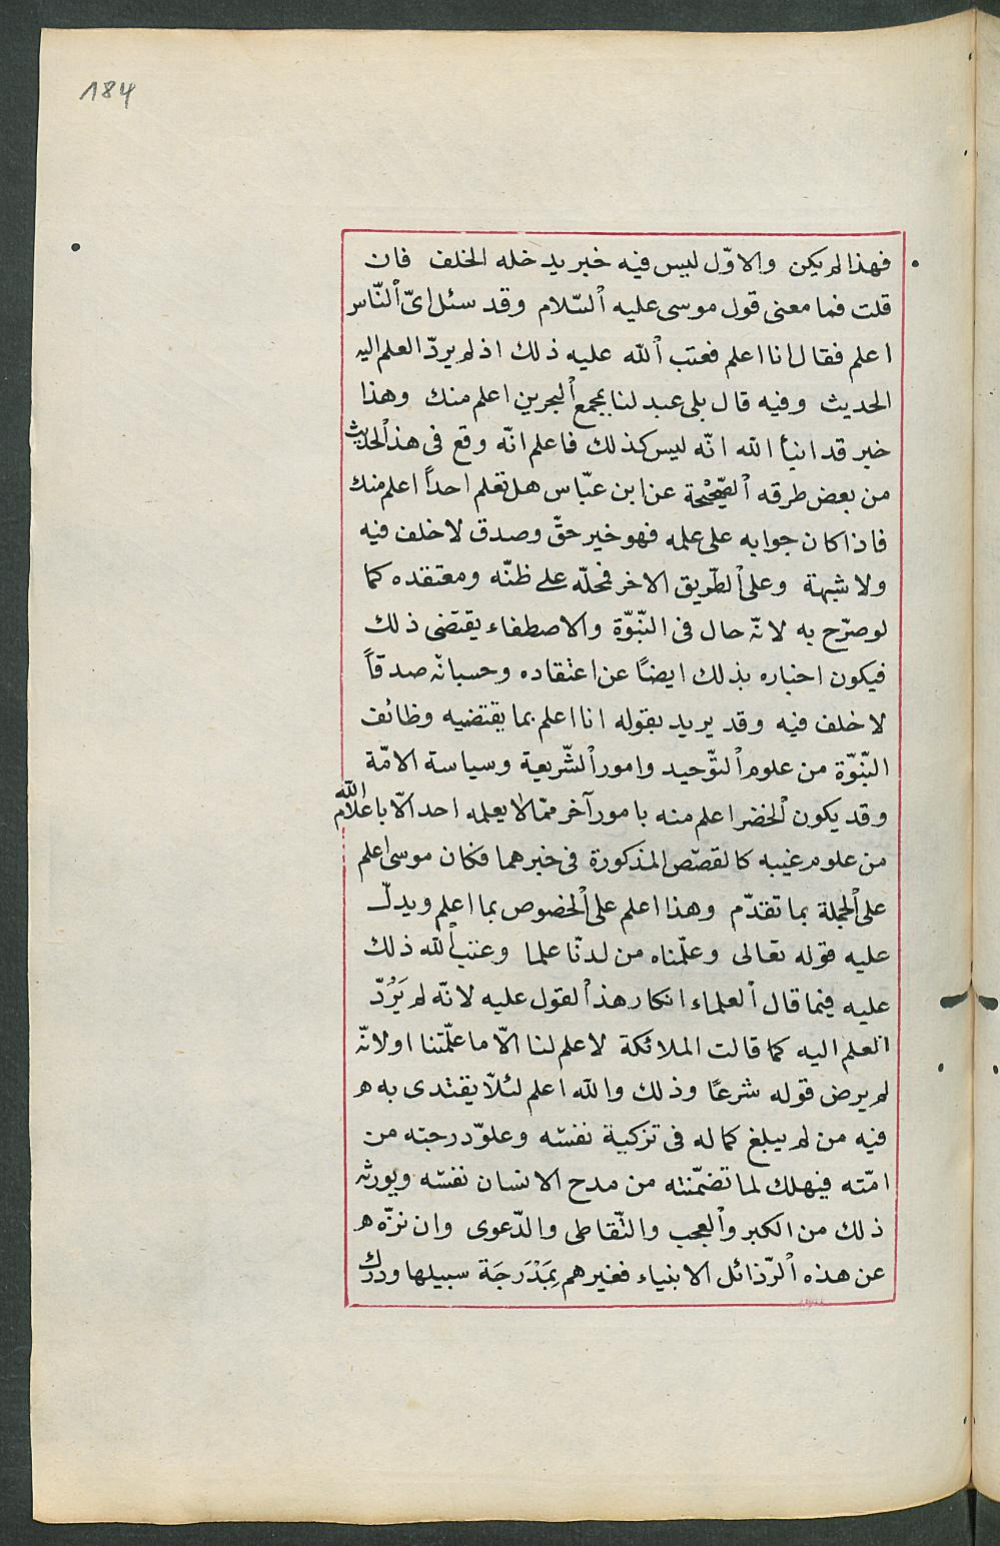 184
فهذا لم يكن والاوّل ليس فيه خبر يدخله الخلف فان
قلت فما معنى قول موسى عليه السّلام وقد سئل اىّ النّاس
اعلم فقال انا اعلم فعتب الله عليه ذلك اذ لم يردّ العلم اليه
الحديث وفيه قال بلى عبد لنا بمجمع البحرين اعلم منك وهذا
خبر قد انبأ الله انّه ليس كذلك فاعلم انّه وقع فى هذ الحديث
من بعض طرقه الصّحيحة عن ابن عبّاس هل تعلم احداً اعلم منك
فاذا كان جوابه على علمه فهو خبر حقّ وصدق لا خلف فيه
ولا شبهة وعلى الطّريق الاخر فمحلّه على ظنّه ومعتقده كما
لو صرّح به لانّه حال فى النّبوّة والاصطفاء يقتضى ذلك
فيكون اخباره بذلك ايضًا عن اعتقاده وحسبانه صدقاً
لا خلف فيه وقد يريد بقوله انا اعلم بما يقتضيه وظائف
النّبوّة من علوم التوّحيد وامور الشّريعة وسياسة الامّة
وقد يكون الخضر اعلم منه بامور آخر ممّا لا يعلمه احد الّا باعلام الله
من علوم غيبه كالقصص المذكورة فى خبرهما فكان موسى اعلم
على الجملة بما تقدّم وهذا اعلم على الخصوص بما اعلم ويدلّ
عليه قوله تعالى وعلّمناه من لدنّا علما وعتب الله ذلك
عليه فيما قال العلماء انكار هذ القول عليه لانّه لم يَرُدّ
العلم اليه كما قالت الملائكة لا علم لنا الّا ما علّمتنا او لانّه
لم يرض قوله شرعًا وذلك والله اعلم لئلّا يقتدى به
فيه من لم يبلغ كماله فى تزكية نفسه وعلوّ درجته من
امّته فيهلك لما تضمّنته من مدح الانسان نفسه ويورثه
ذلك من الكبر والعجب والتّقاطى والدّعوى وان نزّه
عن هذه الرّذائل الانبياء فغيرهم بِمَدْرَجَة سبيلها ودرك